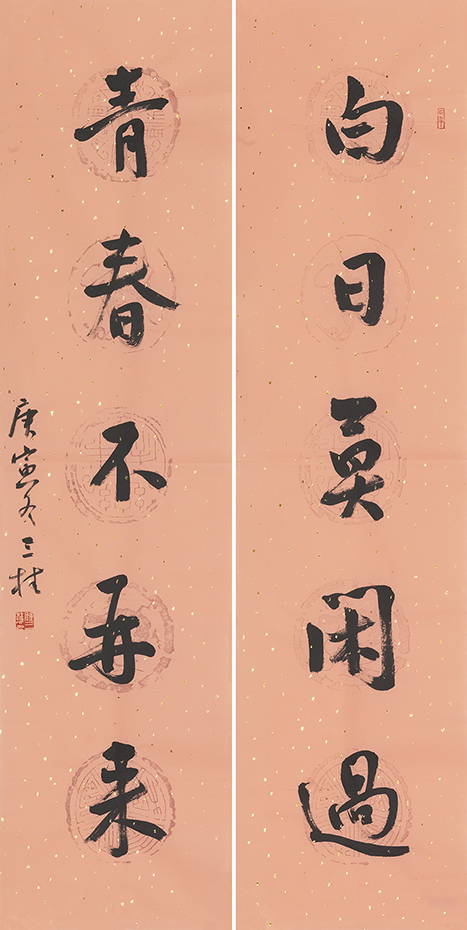 白日莫閑過
青春不再来
庚寅冬三